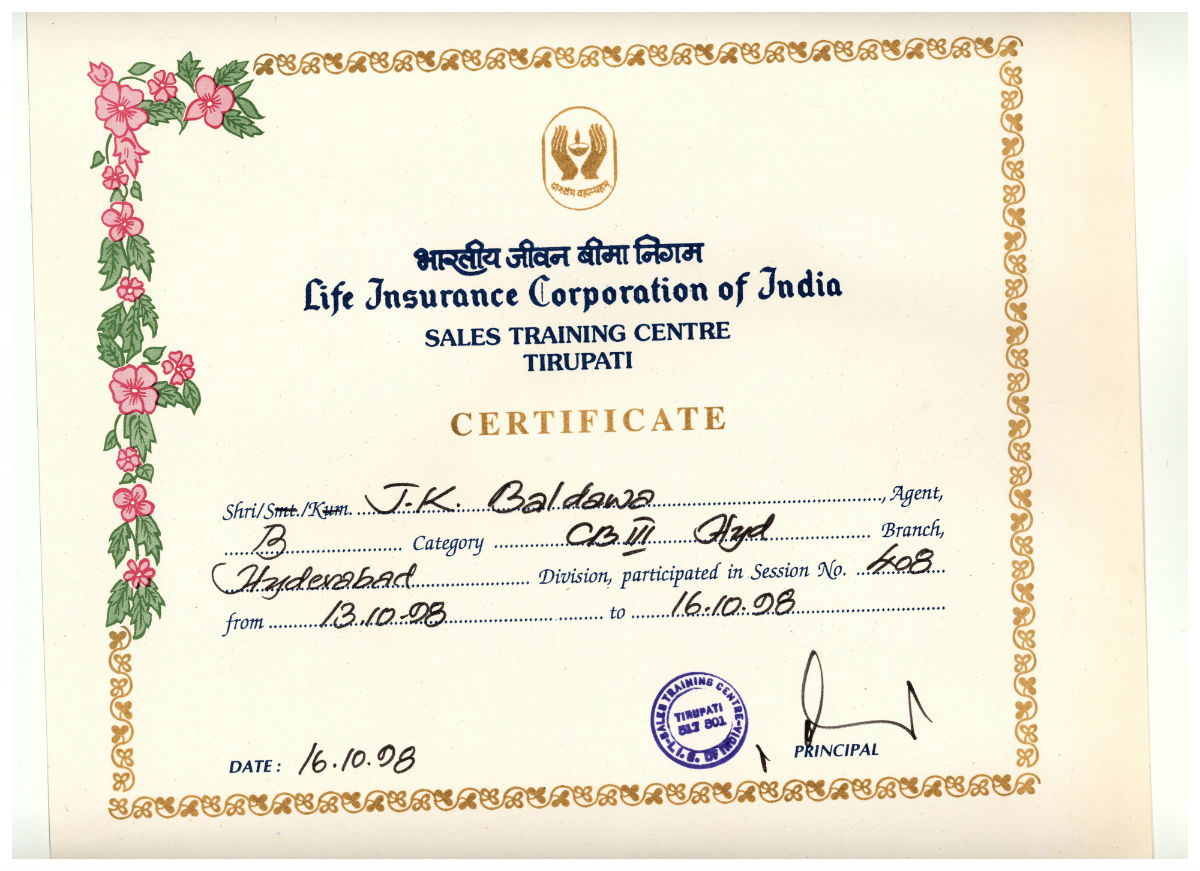 योगक्षेमं वहाम्यहम्
भारतीय जीवन बीमा निगम
Life Insurance Corporation of India
SALES TRAINING CENTRE
TIRUPATI
CERTIFICATE
Shri/Smt./Kum. J.K. Baldawa, Agent,
B Category CB III Hyd Branch,
Hyderabad Division, participated in Session No. 408
from 13.10.98 to 16.10.98
SALES TRAINING CENTRE
TIRUPATI
517 501
L.I.C. OF INDIA
PRINCIPAL
DATE: 16.10.98